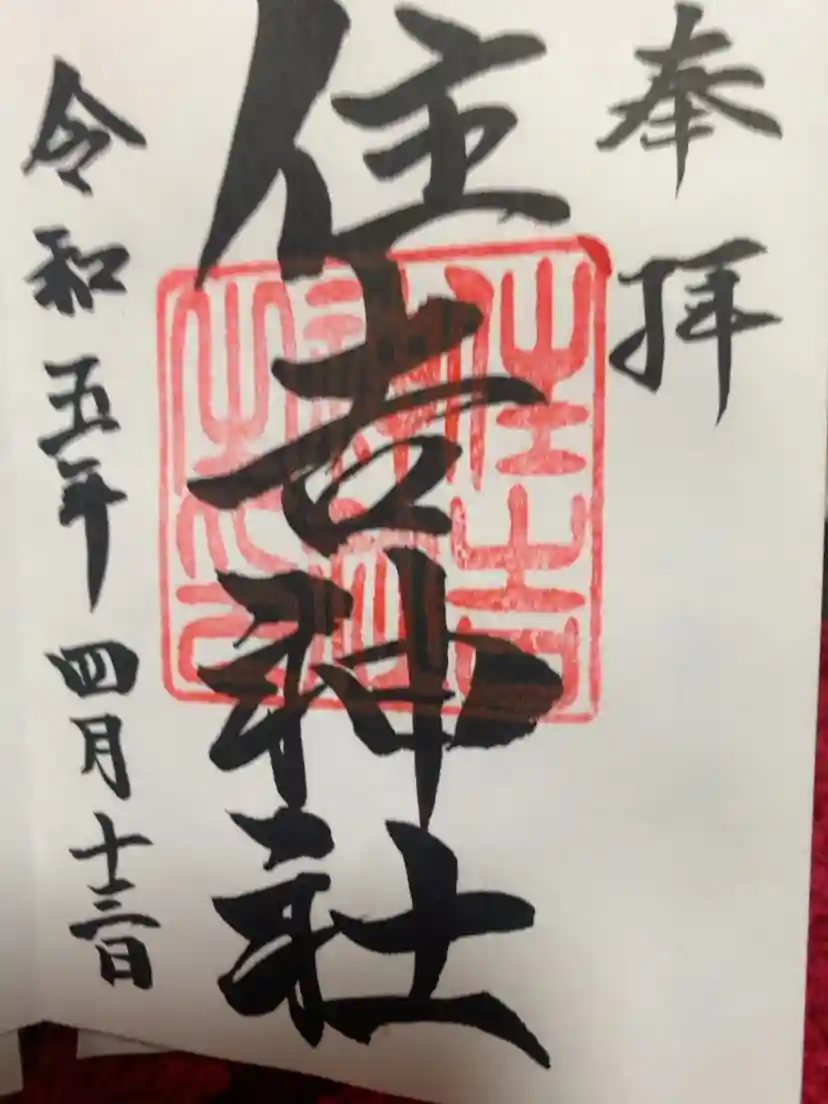 奉拝
住吉神社
令和五年四月十三日
住吉
之印